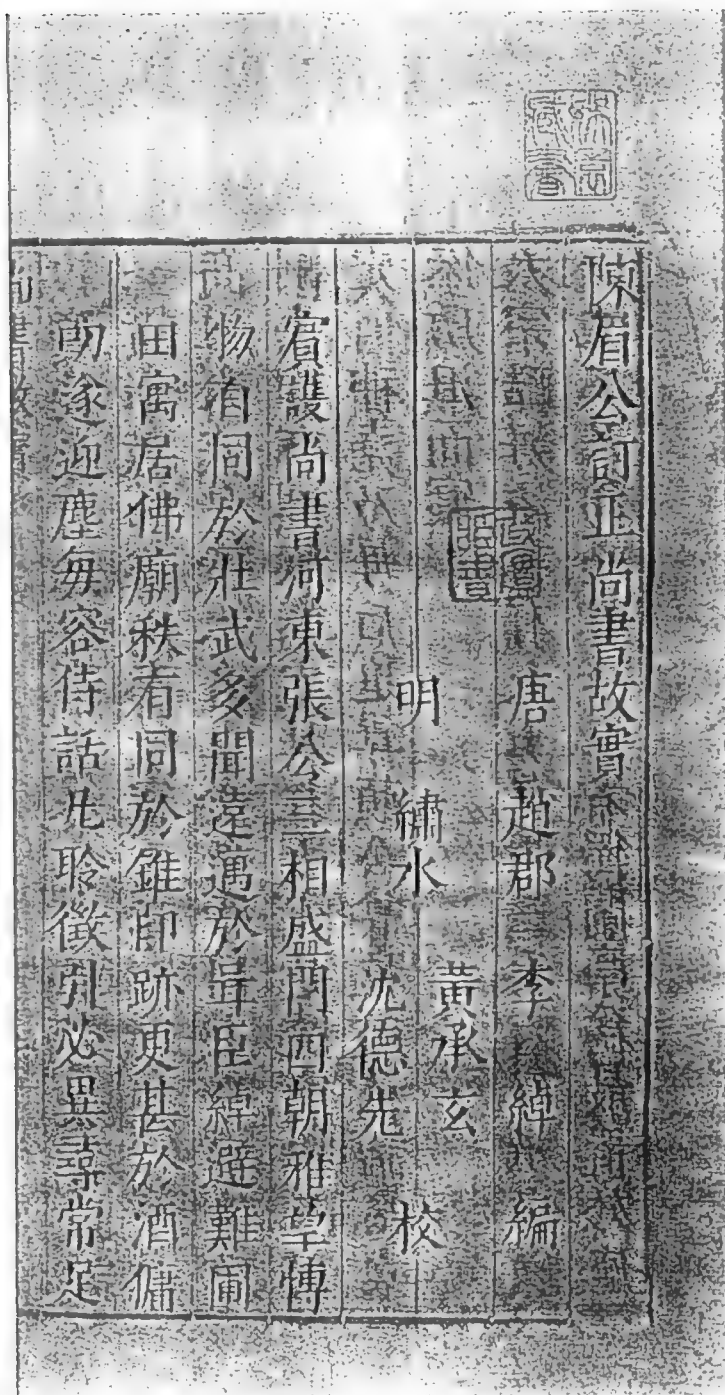 陳眉公訂正尚書故實
唐 趙郡 李綽 編
明 繡水 黃承玄
沈德先 校
賓護尚書河東張公三相盛門四朝雅望博
物自同於壯武多聞遠邁於咠臣綽避難圃
田寓居佛廟秩有同於錐印跡更甚於酒傭
叨遂迎塵每容侍話凡聆徵引必異尋常足